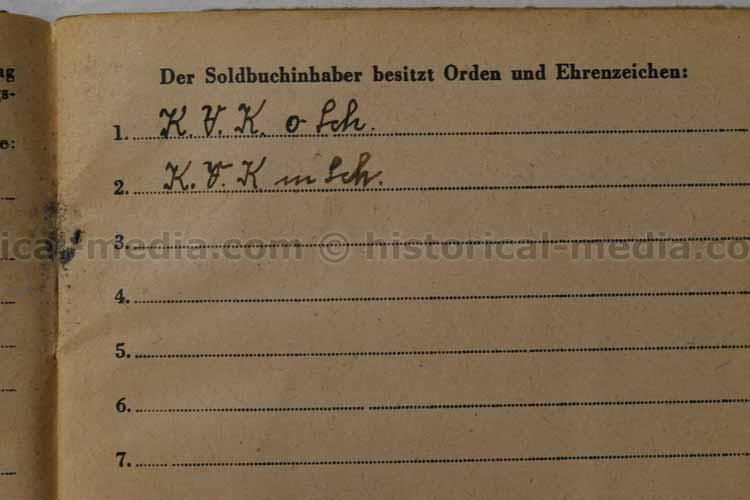 ng
gs-
e:
Der Soldbuchinhaber besitzt Orden und Ehrenzeichen:
1. K. V. K. o Sch.
2. K. V. K m Sch.
3.
historical-media.com © historical-media.com
4.
5.
6.
7.